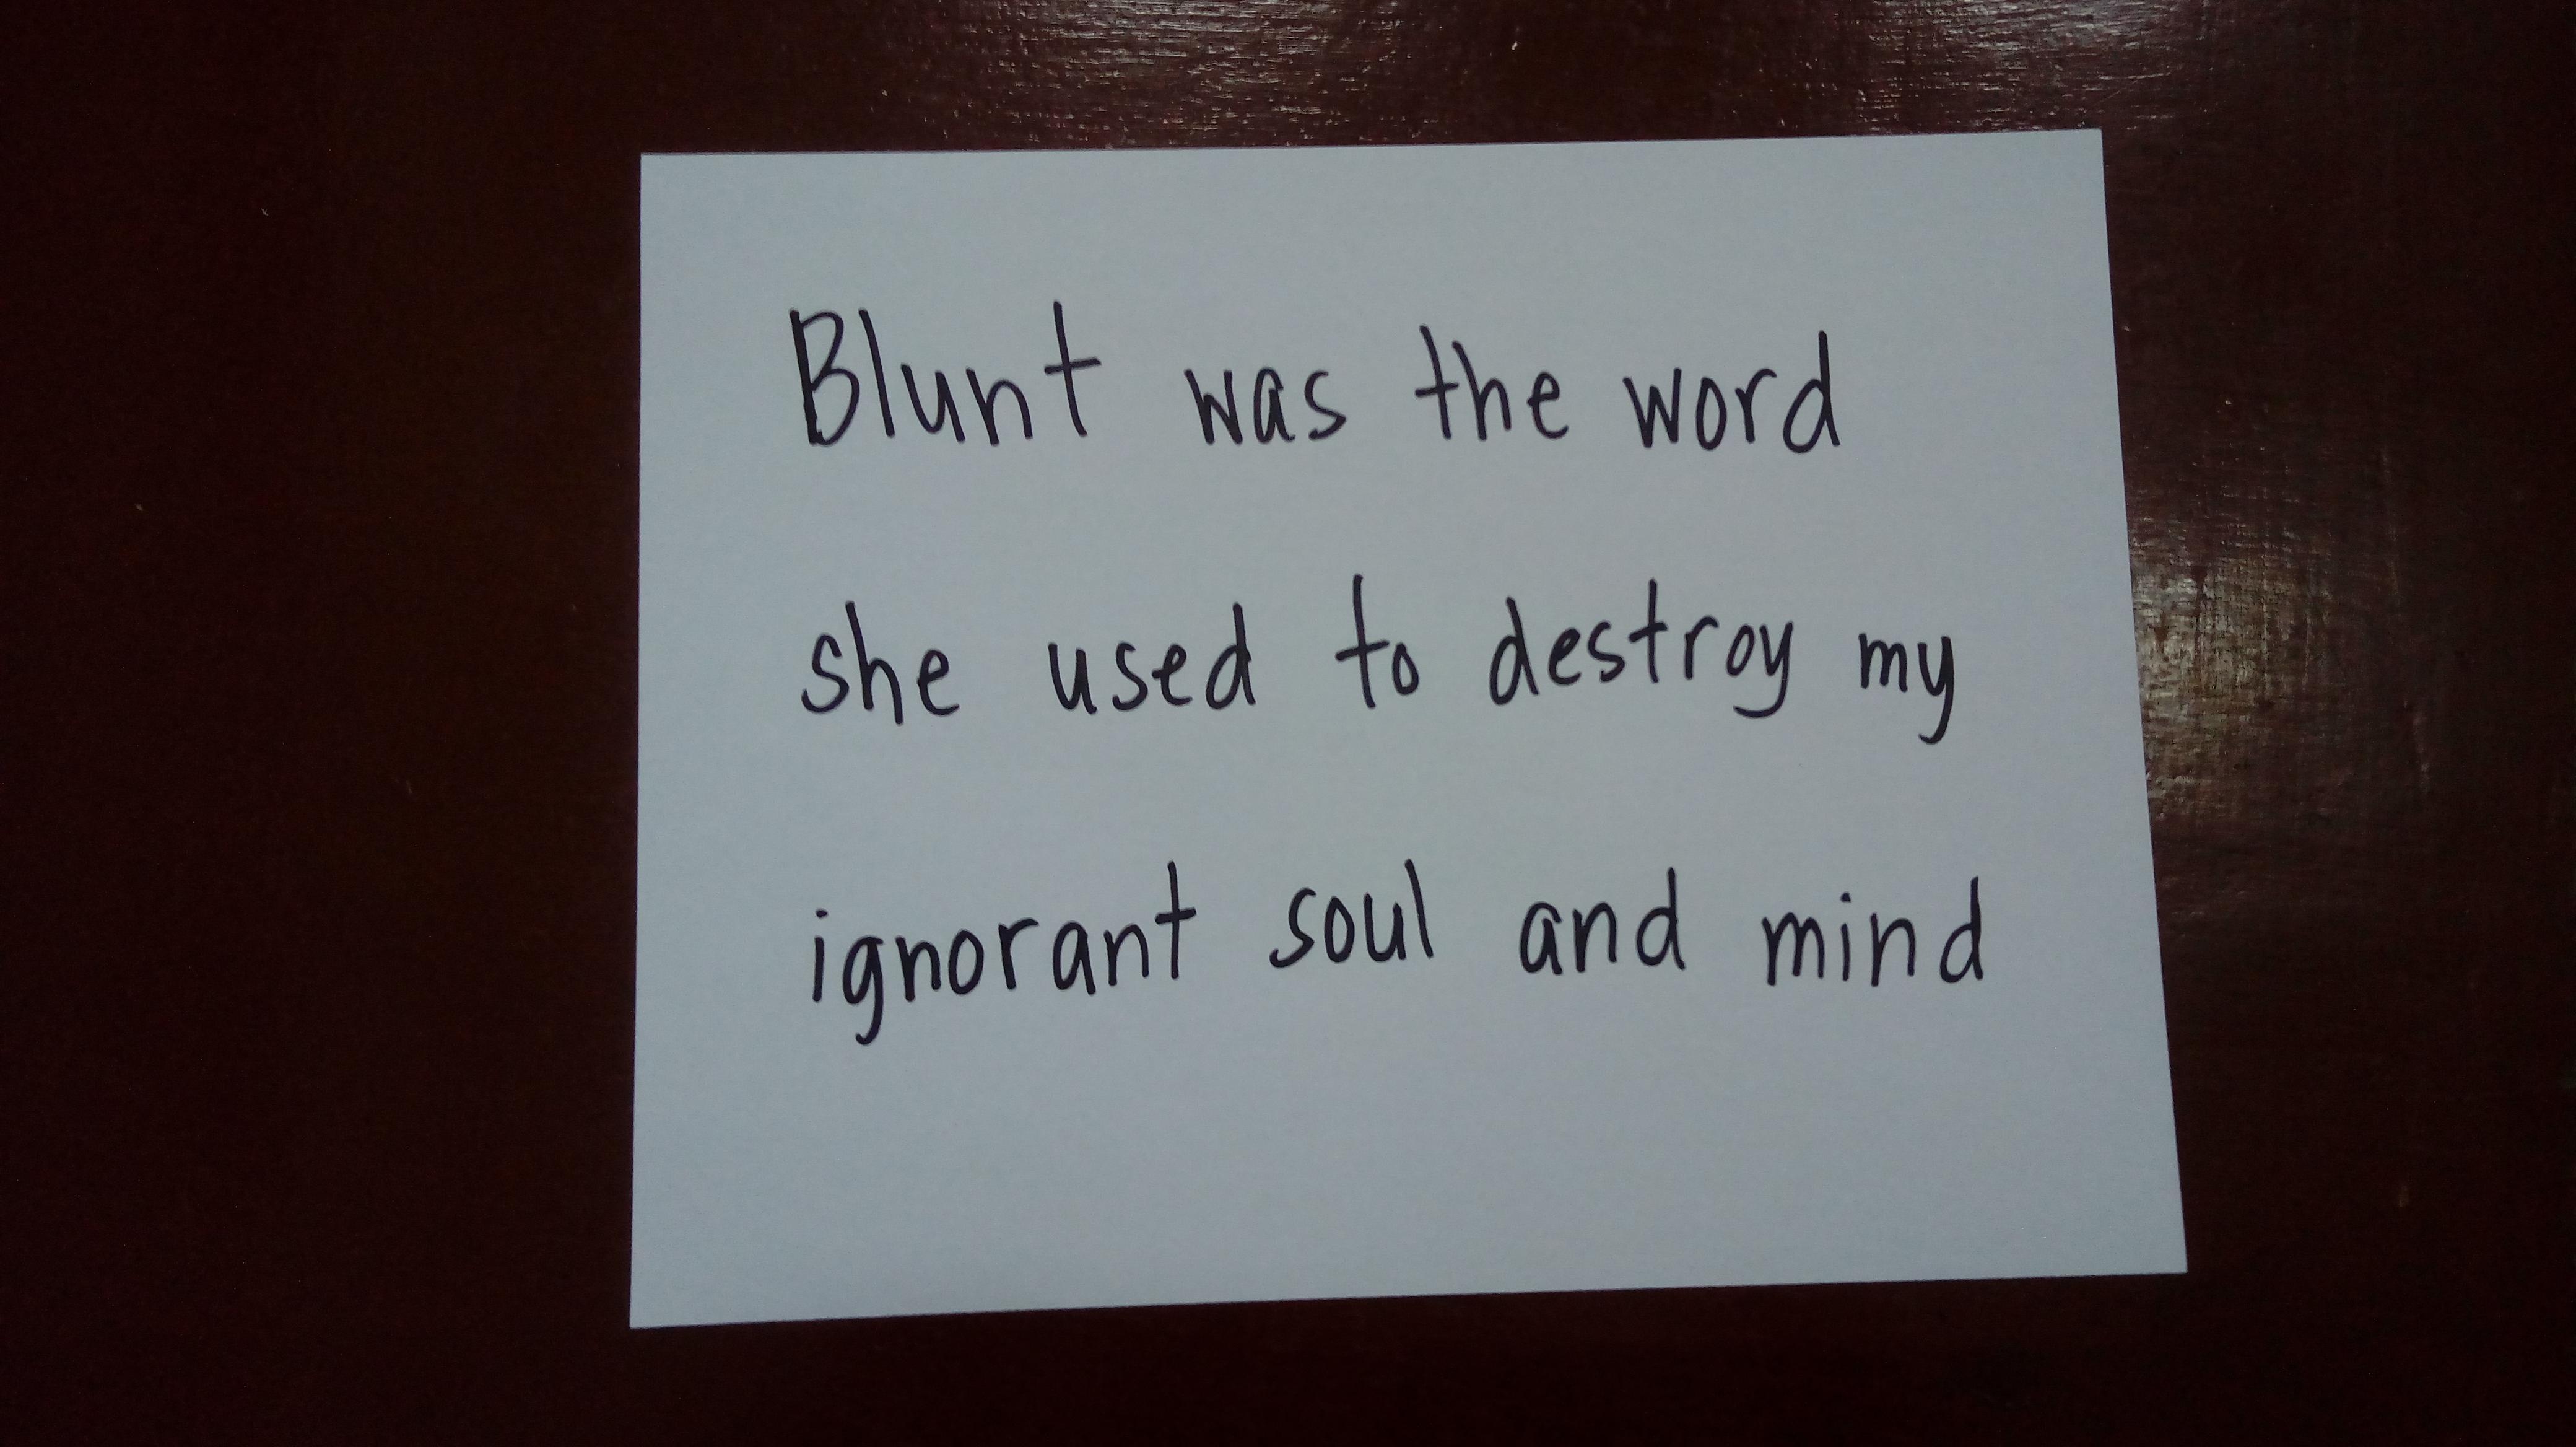 Blunt was the word
she used to destroy my
ignorant soul and mind